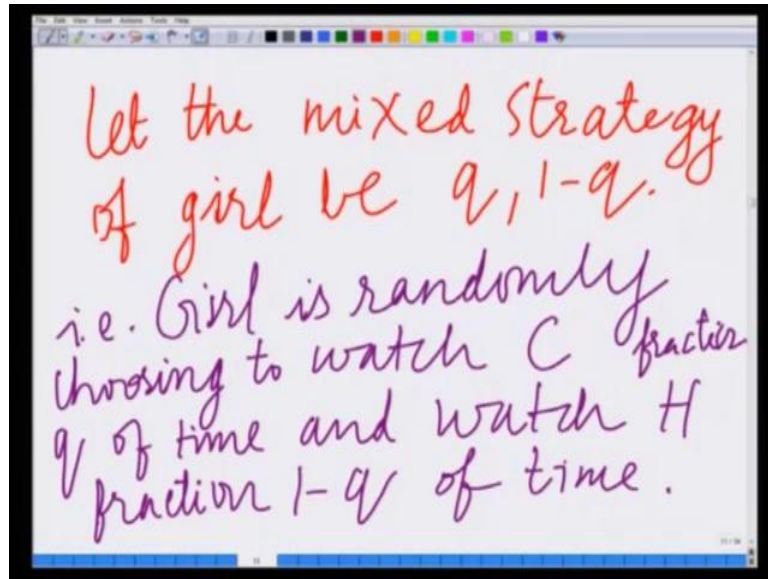 File Edit View Insert Actions Tools Help
Let the mixed strategy
of girl be q, 1-q.
i.e. Girl is randomly
choosing to watch C fraction
q of time and watch H
fraction 1-q of time.